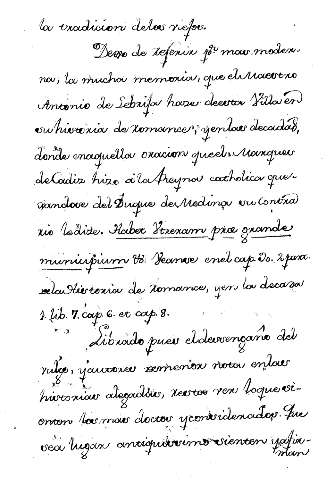 la tradicion de los viejos.
Dexo de referir por mas moder-
na, la mucha memoria, que el Maestro
Antonio de Lebrija haze de esta Villa en
su historia de romance, y en las decadas,
donde en aquella oracion que el Marques
de Cadiz hizo a la Reyna catholica que-
xandose del Duque de Medina su contra
rio le dize. Habet Utreram præ grande
municipium &. Veanse en el cap. 2. part.
de la Historia de romance, y en la decada
1. lib. 7. cap. 6. et cap. 8.
Librado pues el desengaño del
vulgo, y autores se menor nota en las
historias alegadas, resta ver lo que si-
enten los mas doctos y considerados. Que
sea lugar antiquissimo sienten y afir-
man